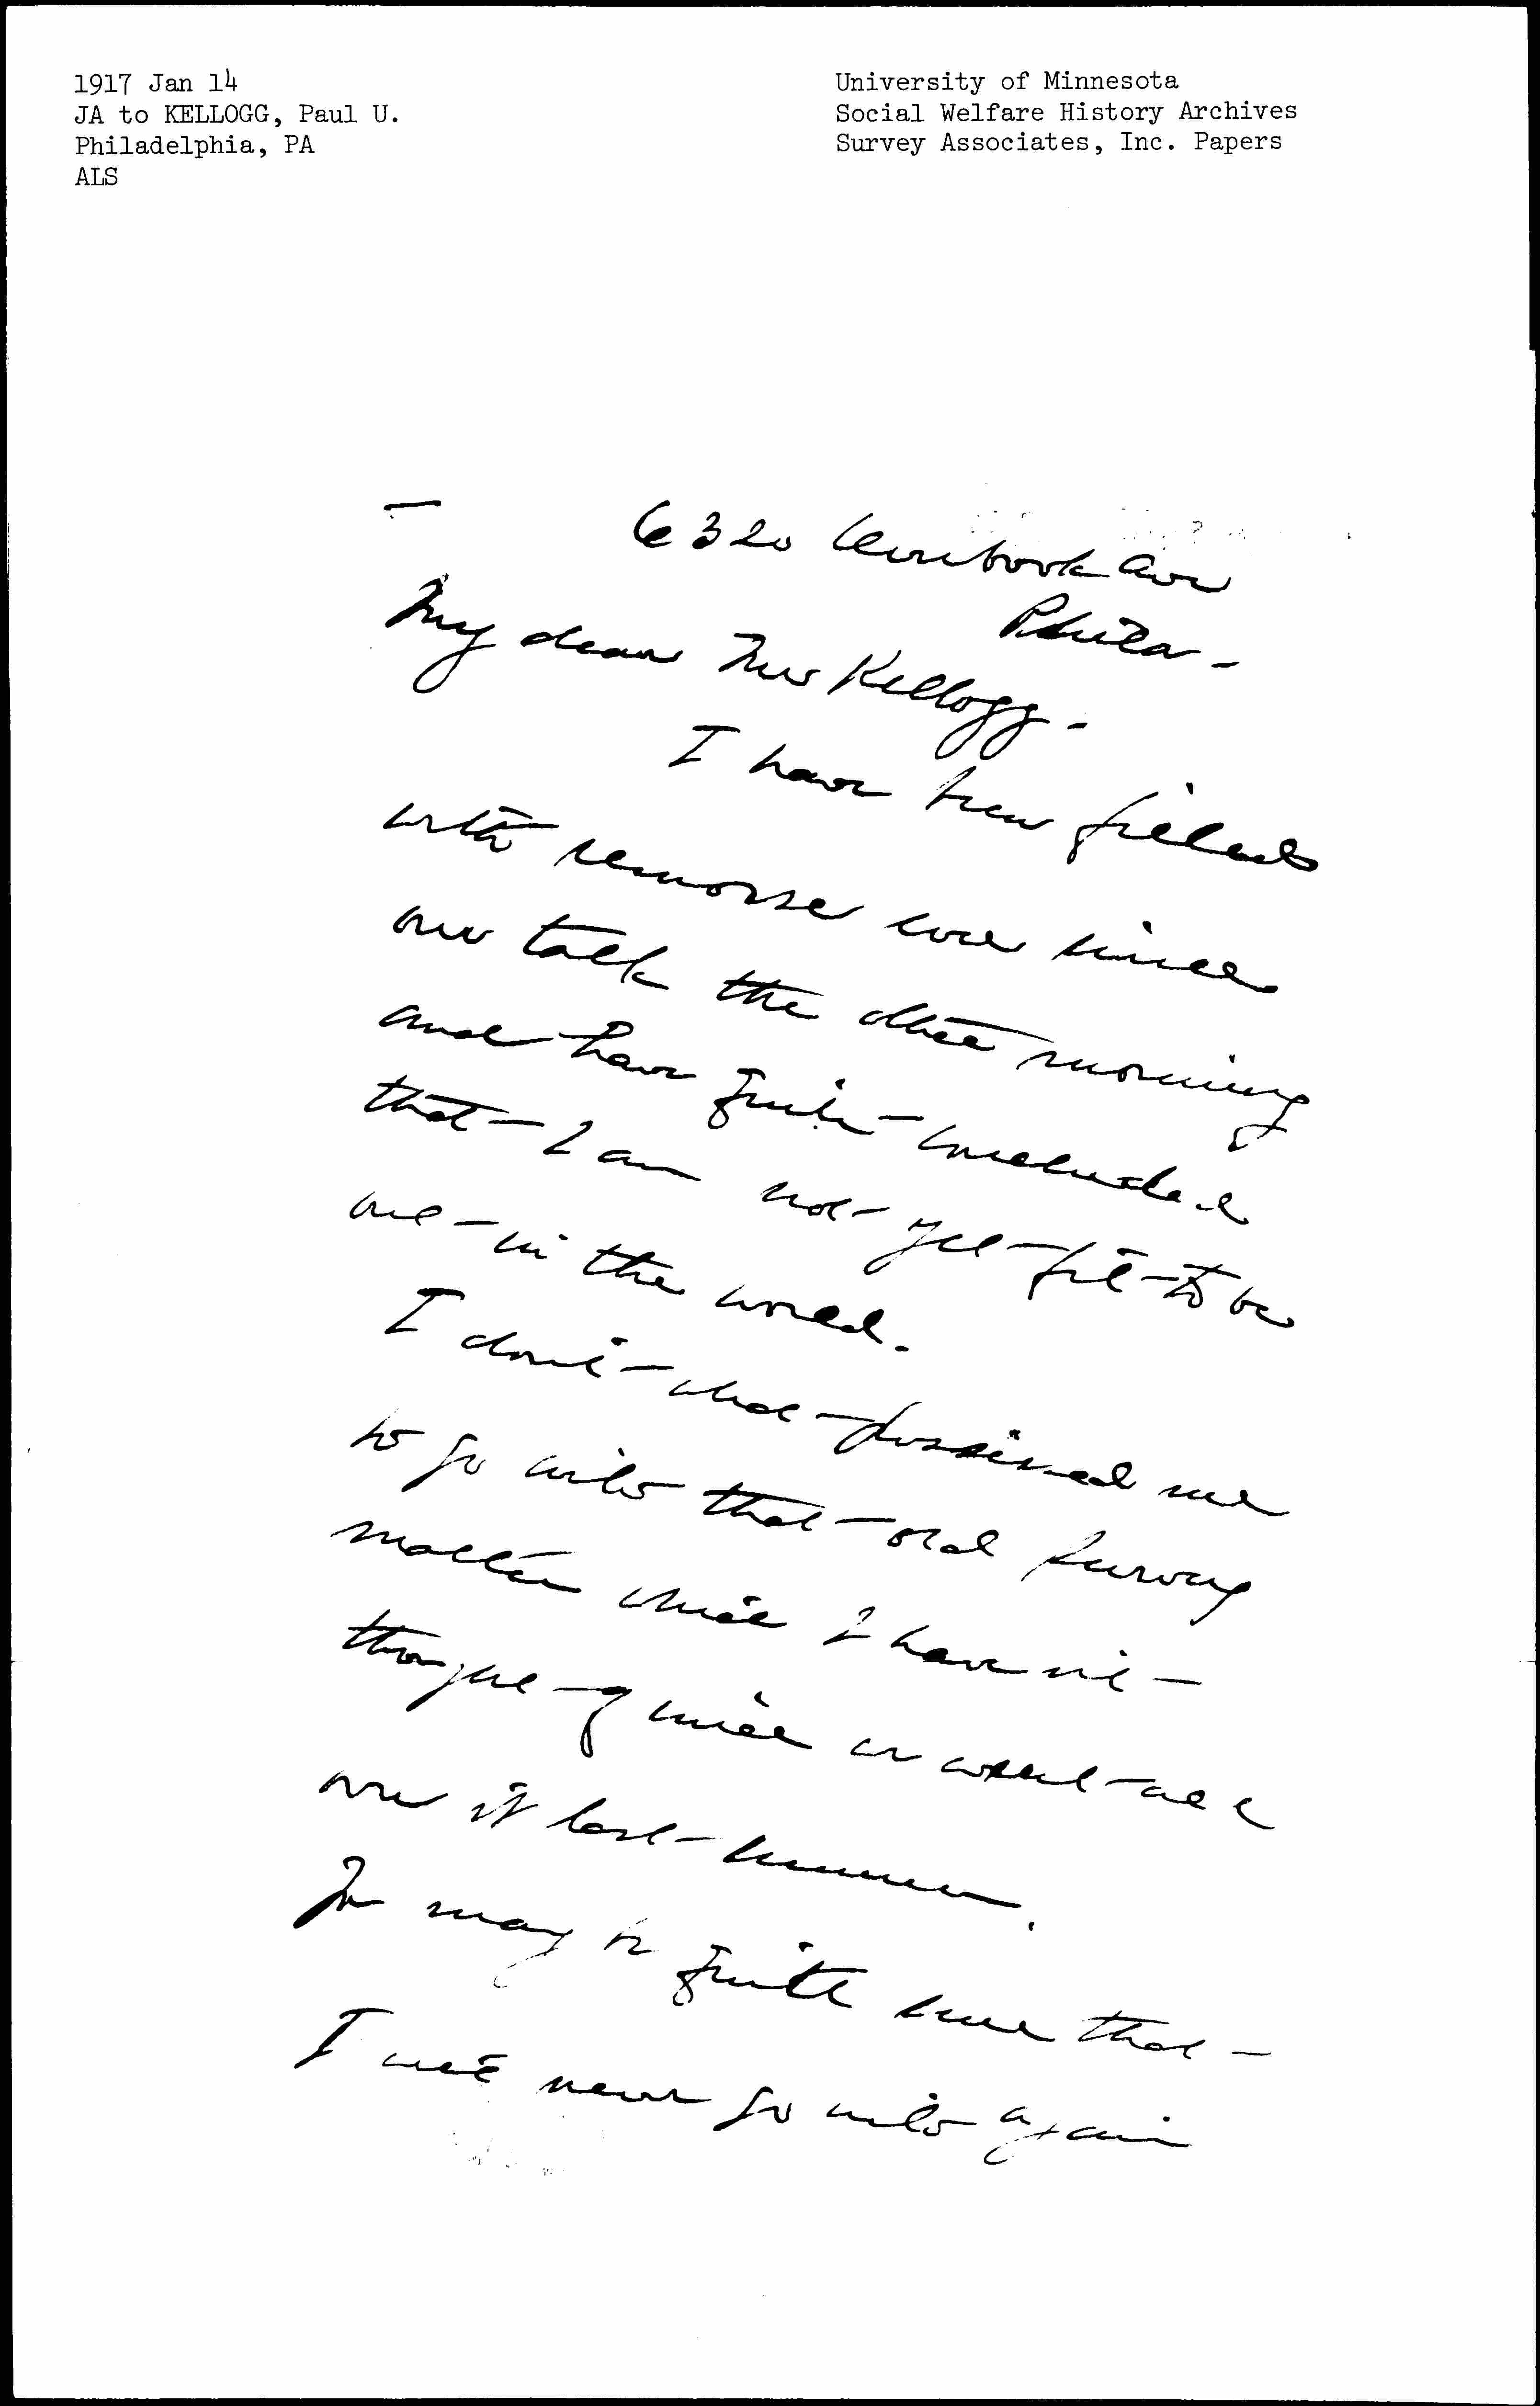 1917 Jan 14
JA to KELLOGG, Paul U.
Philadelphia, PA
ALS
University of Minnesota
Social Welfare History Archives
Survey Associates, Inc. Papers
6320 Ave
Phila-
My dear Mr Kellogg-
I have been filled
with remorse ever since
our talk the other morning
and have quite concluded
that I am not yet fit to be
out in the world.
I don't what possessed me
to go into that old Survey
matter which I haven't
thought of since we went all
over it last summer.
It may be quite sure that
I will never go into again